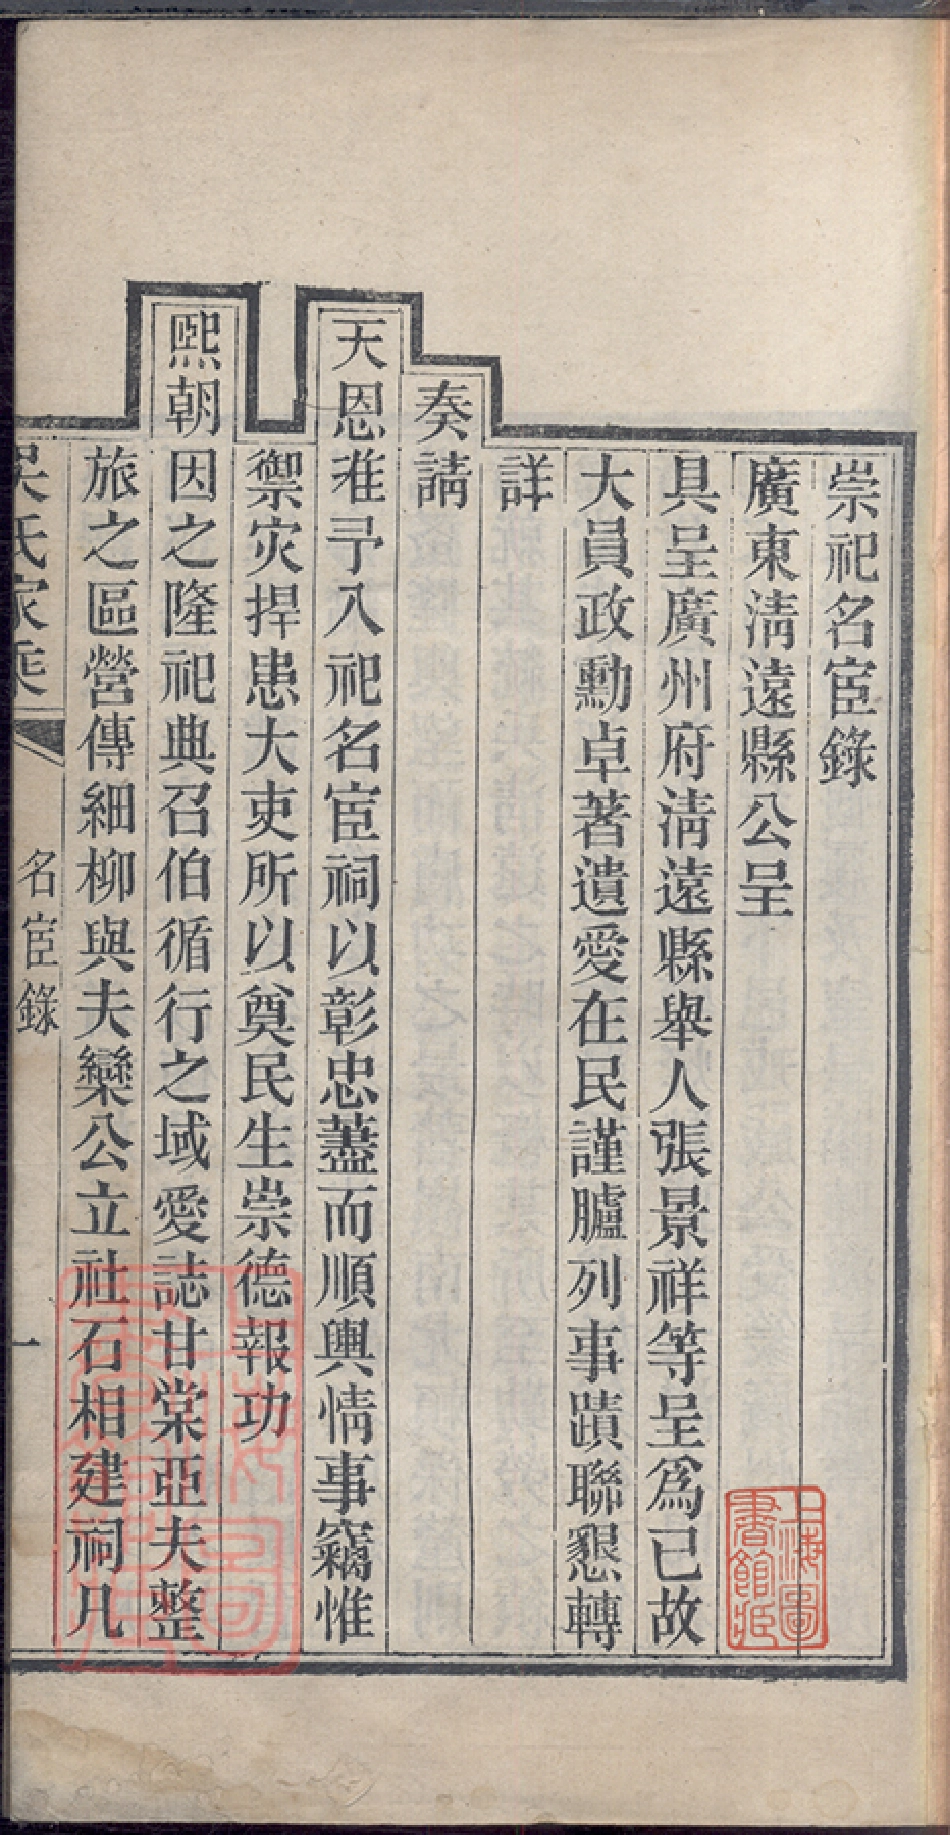 崇祀名宦錄
廣東清遠縣公呈
具呈廣州府清遠縣舉人張景祥等呈為已故
大員政勳卓著遺愛在民謹臚列事蹟聯懇轉
詳
奏請
天恩准予入祀名宦祠以彰忠藎而順輿情事竊惟
禦灾捍患大吏所以奠民生崇德報功
熙朝因之隆祀典召伯循行之域愛誌甘棠亞夫整
旅之區營傳細柳與夫欒公立社石相建祠凡
吳氏家乘
名宦錄
一
上海圖書館藏